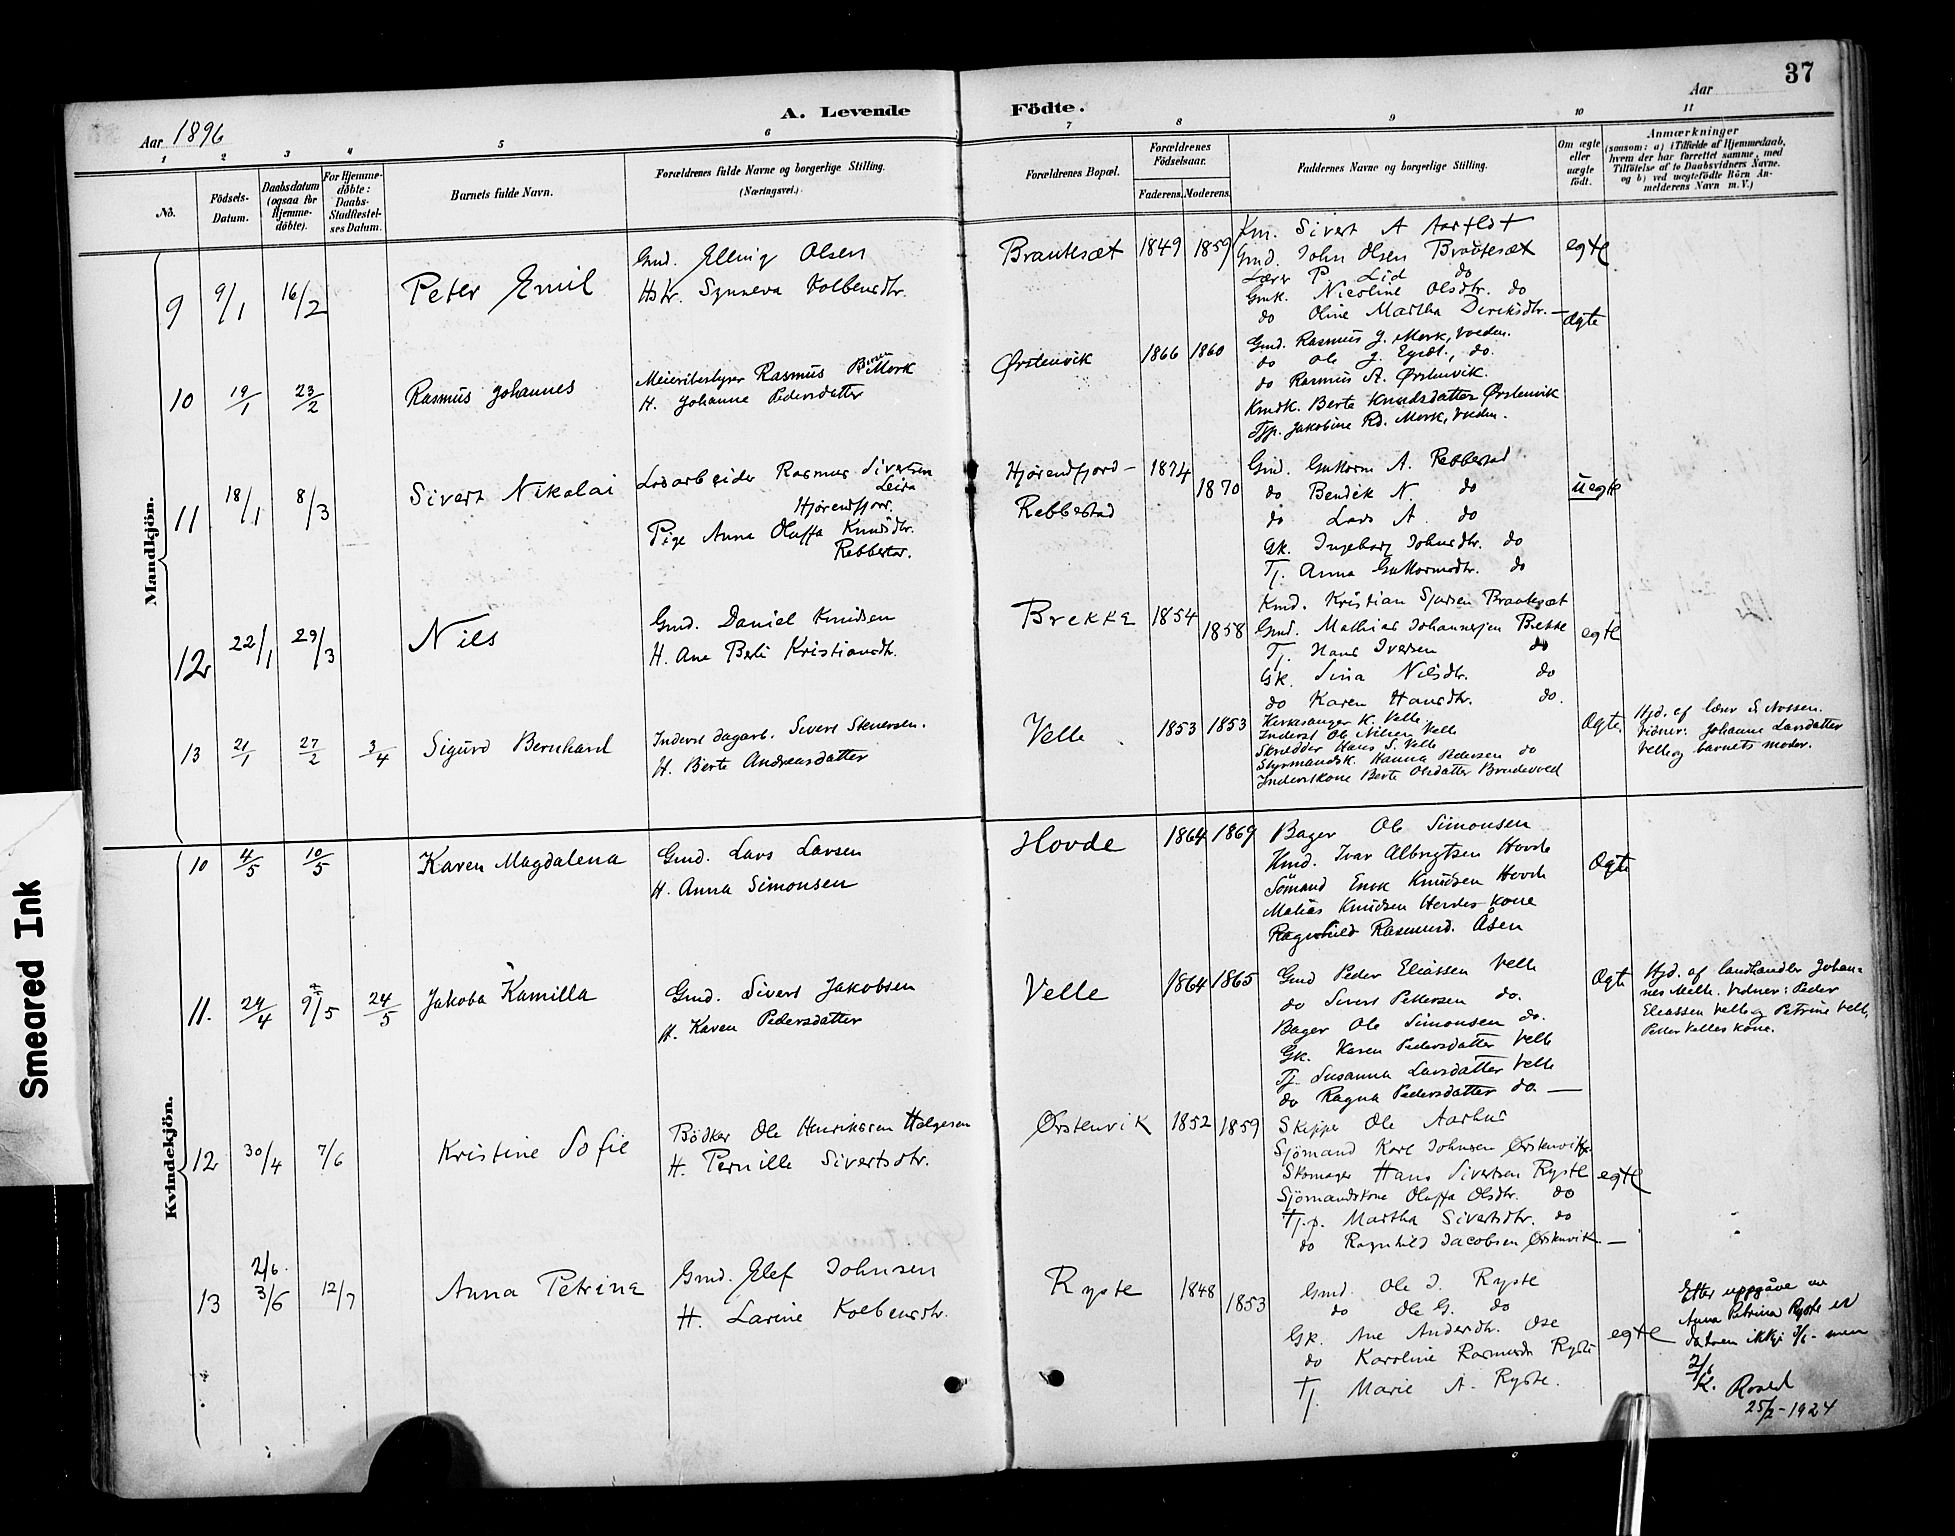 37
Aar 1896
A. Levende Födte.
Aar
1 2 3 4 5 6 7 8 9 10 11
No.
Födsels-Datum.
Daabsdatum (ogsaa for Hjemme-döbte).
For Hjemme-döbte: Daabs-Stadfæstel-ses Datum.
Barnets fulde Navn.
Forældrenes fulde Navne og borgerlige Stilling.
(Næringsvei.)
Forældrenes Bopæl.
Forældrenes Födselsaar.
Faderens. Moderens.
Faddernes Navne og borgerlige Stilling.
Om ægte eller uægte födt.
Anmærkninger
(saasom: a) i Tilfælde af Hjemmedaab,
hvem der har forrettet samme, med
Tilföielse af to Daabsvidners Navne.
og b) ved uægtefödte Börn An-
melderens Navn m. V.)
Mandkjön.
9 9/1 16/2 Peter Emil
Gmd. Elling Olsen
Hstr. Synneva Kolbensdtr.
Brautesæt 1849 1859
Km. Sivert A Aarflot
Gmd. John Olsen Brautesæt
Lærer P. Lid do
Gmk. Nicoline Olsdtr. do
do Oline Martha Diriksdtr.
egte
10 19/1 23/2 Rasmus Johannes
Meieribestyrer Rasmus Mork
H. Johanne Pedersdatter
Ørstenvik 1866 1860
Gmd. Rasmus J. Mork, Voeden.
do Ole J. do.
do Rasmus A. Ørstenvik.
Kmdk. Berte Knudsdatter Ørstenvik
Tjp. Jakobine Rd. Mork, Voeden.
Ægte
11 18/1 8/3 Sivert Nikolai
Løsarbeider Rasmus Sivertsen
Leira
Hjørendfjord.
Pige Anna Oluffa Knudsdtr.
Rebbestad.
Hjørendfjord -
Rebbestad
1874 1870
Gmd. Guttorm A. Rebbestad
do Bendik N. do
do Lars A. do
Gk. Ingeborg Johnsdtr. do
Tj. Anna Guttormsdtr. do
uegte
12 22/1 29/3 Nils
Gmd. Daniel Knudsen
H. Ane Berte Kristiansdtr.
Brekke 1854 1858
Kmd. Kristian Brautesæt
Gmd. Mathias Johannesen Brekke
Tj. Hans Iversen do
Gk. Sina Nilsdtr. do
do Karen Hansdtr. do.
egte
13 21/1 27/2 3/4 Sigurd Bernhard
Inderst dagarb. Sivert Stenersen.
H. Berte Andreasdatter
Velle 1853 1853
Kirkesanger K. Velle
Inderst Ole Nilsen Velle
Skredder Hans S. Velle
Styrmandsk. Hanna Pedersen do
Inderstkone Berte Olsdatter
Ægte.
Hjd. af lærer S. Nossen.
Vidner: Johanne Larsdatter
Velle og barnets moder.
Kvindekjön.
10 4/5 10/5 Karen Magdalena
Gmd. Lars Larsen
H. Anna Simonsen
Hovde 1864 1869
Bager Ole Simonsen
Kmd. Ivar Albrigtsen Hovde
Sømand Enok Knudsen Hovde
Matias Knudsen Hovdes kone
Ragnhild Rasmusd. Åsen
Ægte
11. 24/4 9/5 24/5 Jakoba Kamilla
Gmd. Sivert Jakobsen
H. Karen Pedersdatter
Velle 1864 1865
Gmd Peder Eliassen Velle
do Sivert Pettersen do.
Bager Ole Simonsen do.
Gk. Karen Pedersdatter Velle
Tj. Susanna Larsdatter Velle
do Ragna Pedersdatter do.
Ægte
Hjd. af landhandler Johan-
nes Melle. Vidner: Peder
Eliassen Velle og Petrine Velle,
Petter Velles kone.
12 30/4 7/6 Kristine Sofie
Bödker Ole Henriksen Helgesen
H. Pernille Sivertsdtr.
Ørstenvik 1852 1859
Skipper Ole Aarhus
Sjömand Karl Johnsen Ørstenvik
Skomager Hans Sivertsen Ryste
Sjömandskone Oluffa Olsdtr. do
Tj.p. Martha Sivertsdtr. do
do Ragnhild Jacobsen Ørstenvik
egte
13 2/6. 3/6 12/7 Anna Petrine
Gmd. Elef Johnsen
H. Larine Kolbensdtr.
Ryste 1848 1853
Gmd. Ole J. Ryste
do Ole G. do
Gk. Ane Andersdtr. Ose
do Karoline Rasmusdtr Ryste
Tj. Marie A. Ryste.
egte
Etter uppgåve av
Anna Petrina Ryste er
datoen ikkje 3/6 - men
2/6
K. Roald
25/2-1924
Smeared Ink